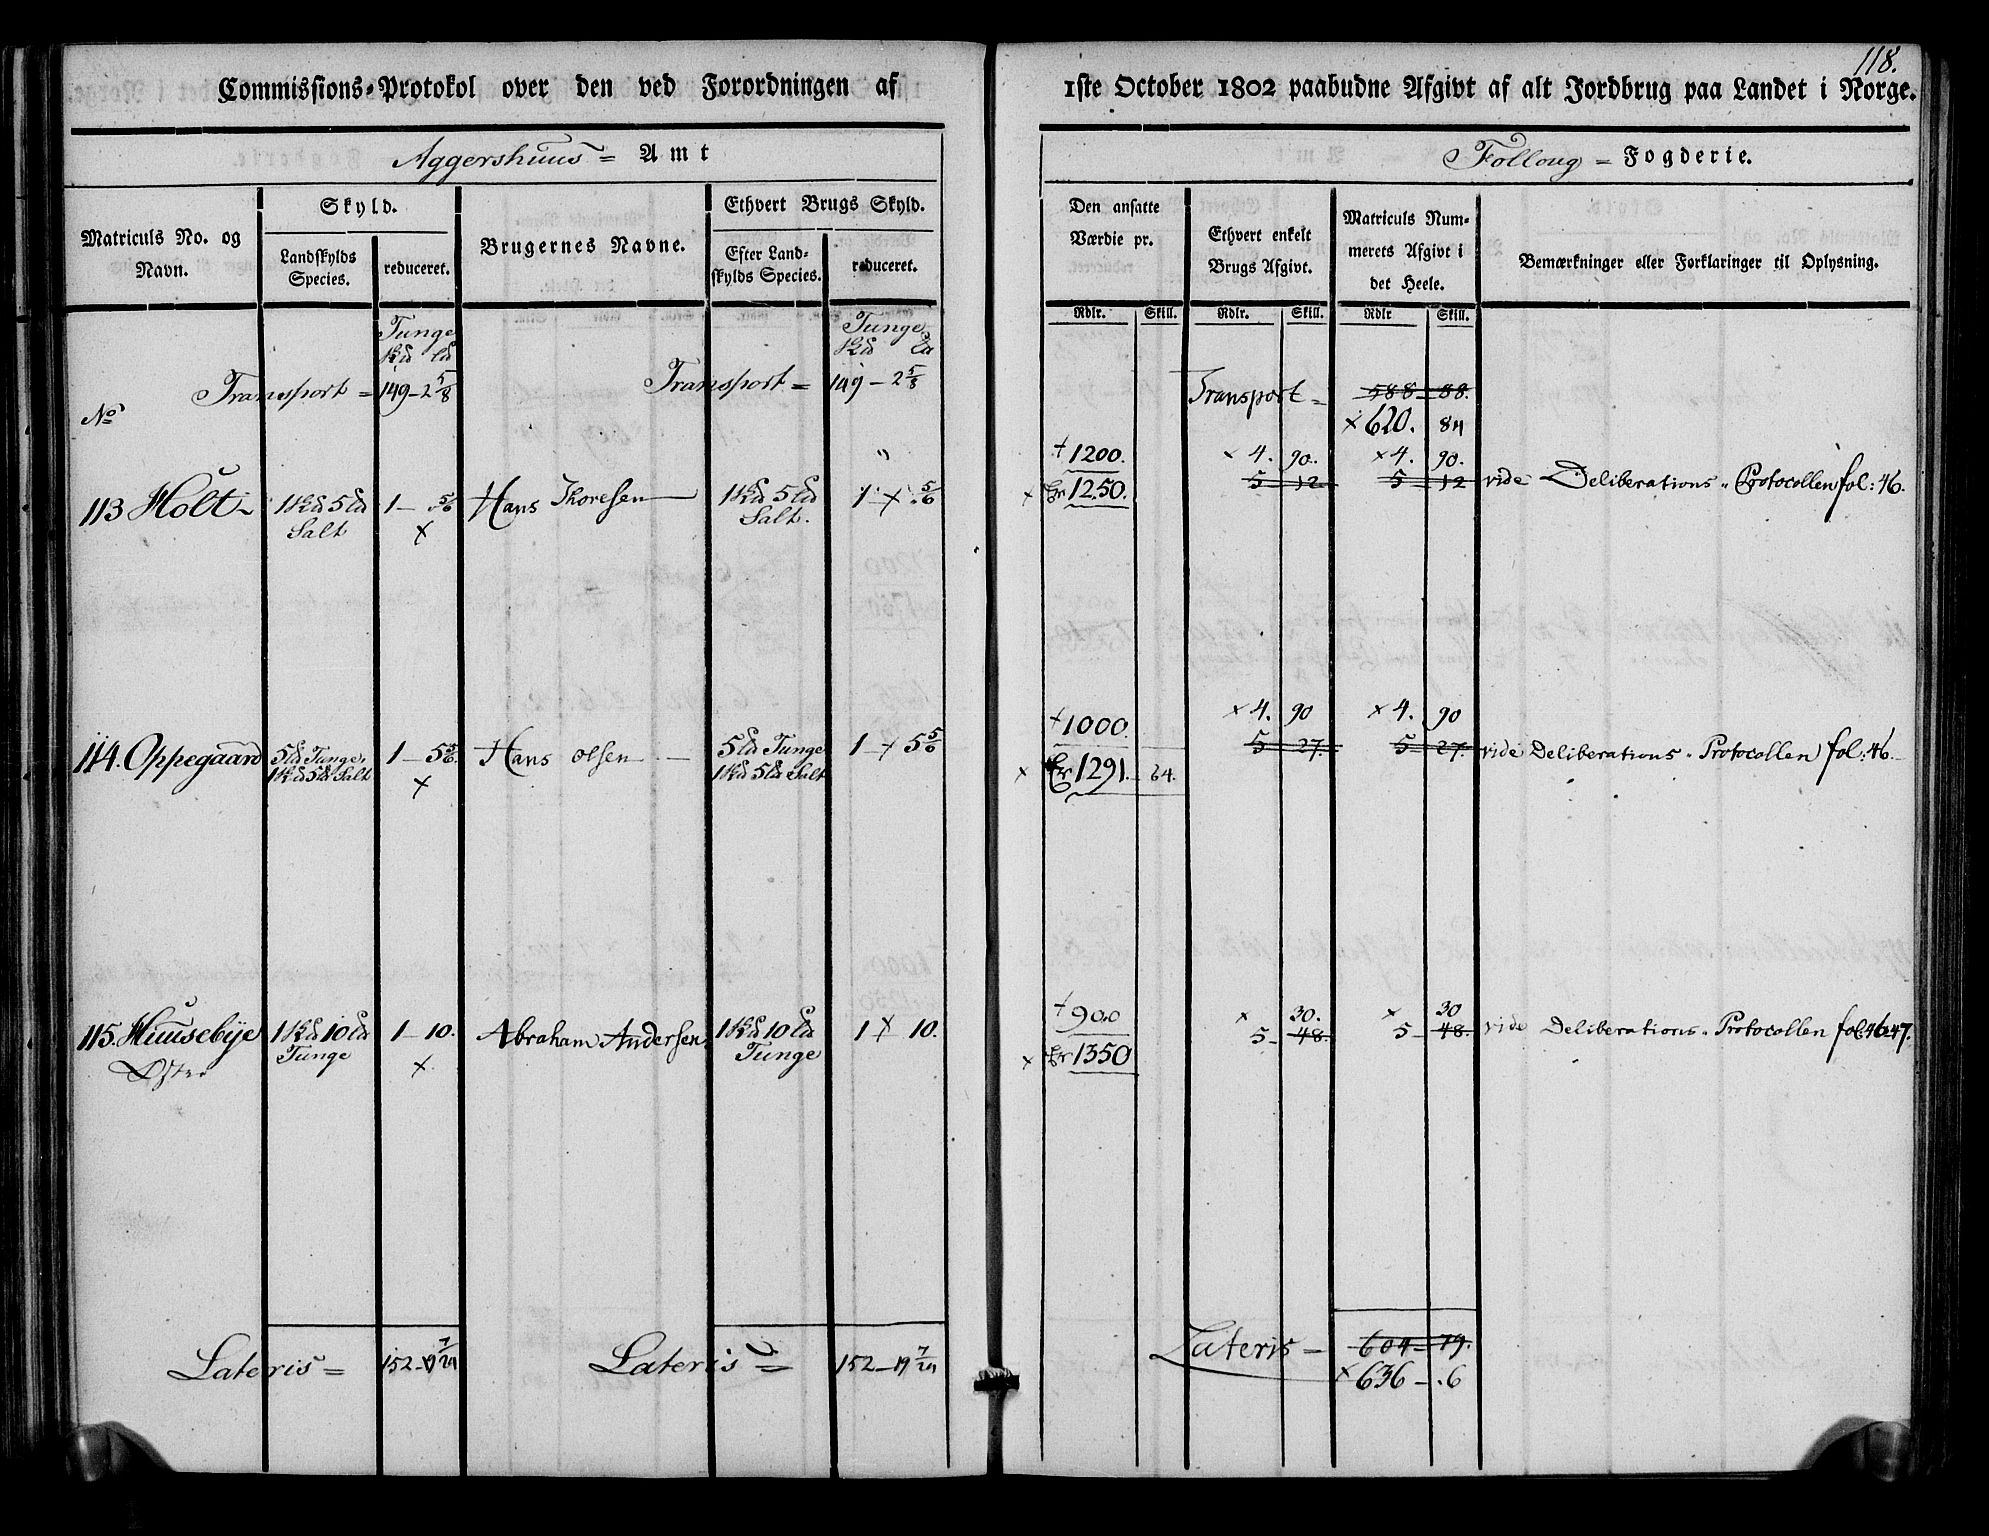 118.
Commissions-Protokol over den ved Forordningen af 1ste October 1802 paabudne Afgivt af alt Jordbrug paa Landet i Norge.
Aggershuus = Amt
Folloug = Fogderie.
Matriculs No. og Navn.
Skyld.
Landskylds Species.
reduceret.
Brugernes Navne.
Ethvert Brugs Skyld.
Efter Landskylds Species.
reduceret.
Den ansatte Værdie pr.
Ethvert enkelt Brugs Afgivt.
Matriculs Nummerets Afgivt i det Heele.
Bemærkninger eller Forklaringer til Oplysning.
Rdlr. Skill. Rdlr. Skill. Rdlr Skill.
Tunge Tunge
Transport = 149 - 2 5/8 Transport = 149 - 2 5/8 Transport = 588 - 88.
No × 620. 84
+ 1200. × 4. 90. × 4. 90.
113 Holt 1 5 Salt 1 - 5/6 × Hans Thoresen 1 5 Salt. 1 × 5/6 × Er 1250. 5 12 5 12 vide Deliberations Protocollen fol: 46.
+ 1000. × 4. 90 × 4. 90
114. Oppegaard 5 Tunge, 1 5 Salt 1 - 5 5/6 × Hans Olsen 5 Tunge 1 5 Salt 1 × 5 5/6 × Er 1291. 64. 5 27. 5 27. vide Deliberations Protocollen fol: 46.
+ 900 × 30. × 30
115. Huusebye Øster 1 10 Tunge 1 - 10. × Abraham Andersen 1 10 Tunge 1 × 10. × Er 1350 5 - 48. 5 - 48. vide Deliberations Protocollen fol: 46 47.
Lateris = 152 - 19 7/24 Lateris = 152 - 19 7/24 Lateris = 604 - 79.
× 636 - . 6